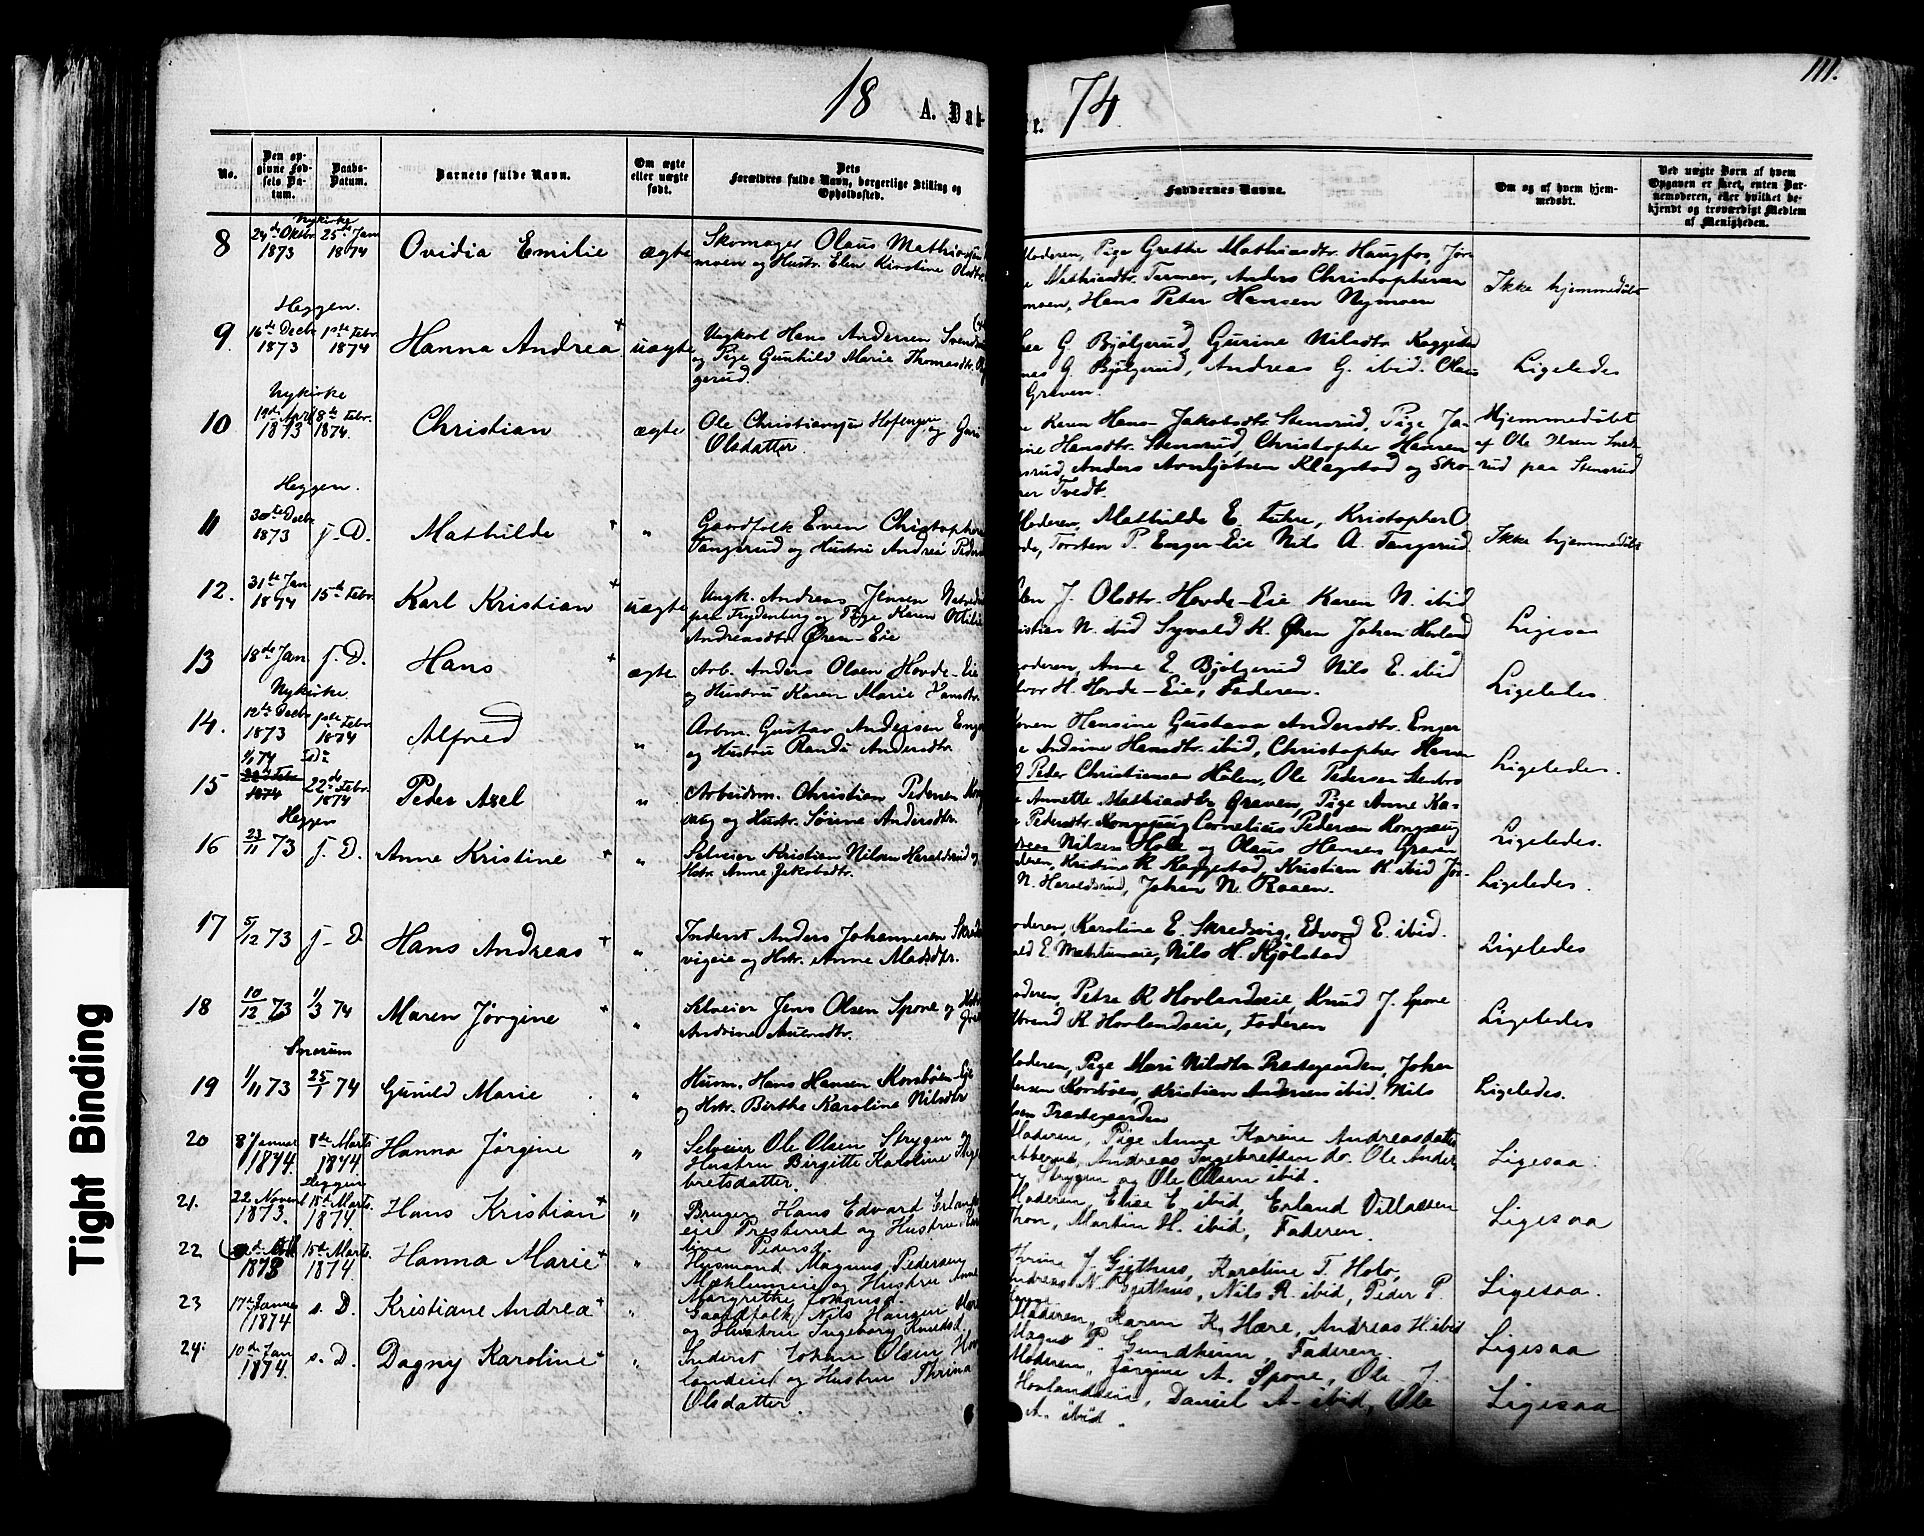 18 74
111.
A. Døb- r.
No.
Den opgivne Fødsels Datum.
Daabs-Datum.
Barnets fulde Navn.
Om ægte eller uægte født.
Forældres fulde Navn, borgerlige Stilling og Opholdssted.
Faddernes Navne.
Om og af hvem hjemmedøbt.
Ved uægte Børn af hvem Opgaven er skeet, enten Barnemoderen, eller hvilket bekjendt og troværdigt Medlem af Menigheden.
Nykirke
8 24de Oktbr 1873 25de Jan 1874 Ovidia Emilie ægte Skomager Olaus Mathias
moen og Hustr. Elen Kirstine Olsdtr
Moderen, Pige Grethe Mathiasdtr. Haugfos, Jør
Mathiasdtr. Anders Christophersen
moen, Hans Peter Hansen Nymoen
Ikke hjemmedøbt
Heggen.
9 16de Decbr 1873 1ste Febr. 1874 Hanna Andrea + uægte Ungkarl Hans Andersen Svend
og Pige Gunhild Marie Thomasdtr.
gerud.
G. Bjølgerud, Gurine Nilsdtr Kaggestad
G. Bjølgerud, Andreas G. ibid. Olaus
Graven.
Ligeledes
Nykirke
10 19de April 1873 8de Febr. 1874. Christian ægte Ole Christiansen og
Olsdatter.
Karen Hans Jakobsdtr. Stensrud, Pige Ja-
ine Hansdtr. Stensrud, Christopher Hansen
srud, Anders Arnljotsen Klægstad og Sko-
Tvedt.
Hjemmedøbt
af Ole Ibsen
rud paa Stensrud
Heggen.
11 30te Decbr 1873 s. D. Mathilde + " Gaardfolk Even Christophers
Tangerud og Hustru Andrea Peders
Moderen, Mathilde E. Fuhre, Kristopher O
Torsten P. Enger-Eie Nils A. Tangerud.
Ikke hjemmedøbt
12. 31te Jan 1874 15de Febr. Karl Kristian + uægte Ungk. Andreas Jensen
paa Frydenberg og Pige Karen Otilie
Andreasdtr. Øren-Eie
J. Olsdtr. Hovde-Eie Karen N. ibid
istian N. ibid Syvald K. Øren Johan Hovland
Ligesaa
13 18de Jan s. D. Hans + ægte Arb. Anders Olsen Hovde-Eie
og Hustru Karen Marie Hansdtr.
Moderen, Anne E. Bjølgerud Nils E. ibid
H. Hovde-Eie, Faderen.
Ligeledes.
Nykirke.
14. 12te Decbr 1873 1ste Febr 1874 Alfred " Arbm. Gustav Andersen Enger
og Hustru Randi Andersdtr.
Hansine Gustava Andersdtr. Enger
Andrine Hansdtr. ibid, Christopher Hansen
Peder Christiansen Holen, Ole Pedersen
Ligeledes.
15 1/1 74 22de Febr 1874 22de Febr. 1874 Peder Axel " Arbeidsm. Christian Pedersen Kong
og Hustr. Sørine Andersdtr.
Annette Mathiasdtr Graven, Pige Anne Ka-
Pedersdtr. Cornelius Pedersen
Nilsen Hole og Olaus Hansen Graven
Ligeledes.
Heggen
16 23/11 73 s. D. Anne Kristine + " Selveier Kristian Nilsen Haraldsrud og
Hstr. Anne Jakobsdtr.
deren, Kristine K Kaggestad, Kristian K. ibid Jør-
N. Haraldsrud, Johan N. Raaen.
Ligeledes.
17 5/12 73 s. D Hans Andreas + " Inderst Anders Johannesen Skreds
vigeie og Hstr. Anne Madsdtr.
oderen, Karoline E. Skredsvig, Edvard E. ibid.
E. Nils H. Kjølstad
Ligeledes
18 10/12 73 1/3 74 Maren Jørgine + " Selveier Jens Olsen Spone og Hstr
Andrine
oderen, Petra K Hovlandseie, Knud J. Spone
K. Hovlandseie, Faderen
Ligeledes
Snarum
19 1/11 73 25/1 74 Gunild Marie " Husm. Hans Hansen Korsbøen-Eje
og Hstr. Birthe Karoline Nilsdtr
Moderen, Pige Mari Nilsdtr. Præstegaarden, Johan
Korsbøen, Kristian Andersen ibid, Nils
Præstegaarden
Ligeledes.
20 8 Januar 1874. 8de Marts 1874 Hanna Jørgine " Selveier Ole Olsen Strygen og
Hustru Birgitte Karoline
bretsdatter.
Moderen, Pige Anne Karine Andreasdatter
Andreas Ingebretsen do. Ole Ander
Strygen og Ole Olsen ibid.
Ligesaa
Heggen
21. 22 Novemb 1873. 15de Marts. 1874. Hans Kristian + " Bruger Hans Edvard Erland
eie Presterud og Hustru
line Pedersd.
Moderen, Elise E ibid, Erland
Martin H. ibid, Faderen.
Ligesaa
22 1873 15de Marts. 1874. Hanna Marie + " Husmand Magnus Pedersen
Mæhlumeie og Hustru Anne
Margrethe
J. Gjethus, Karoline T. Holo,
Andreas N. Gjethus, Nils R. ibid, Peder P.
Ligesaa.
23 17de Januar 1874 s. D. Kristiane Andrea + " Gaardfolk Nils Haugen
og Hustru Ingeborg Knudsd.
Moderen, Karen K. Hære, Andreas H. ibid
Magnus P. Gundheim, Faderen.
Ligesaa
24. 10de Jan 1874. s. D. Dagny Karoline + " Inderst Johan Olsen Hov
landseie og Hustru Thrina
Olsdatter.
Moderen, Jørgine A. Spone, Ole J.
Hovlandseie, Daniel A. ibid, Ole
A. ibid.
Ligesaa
Tight Binding